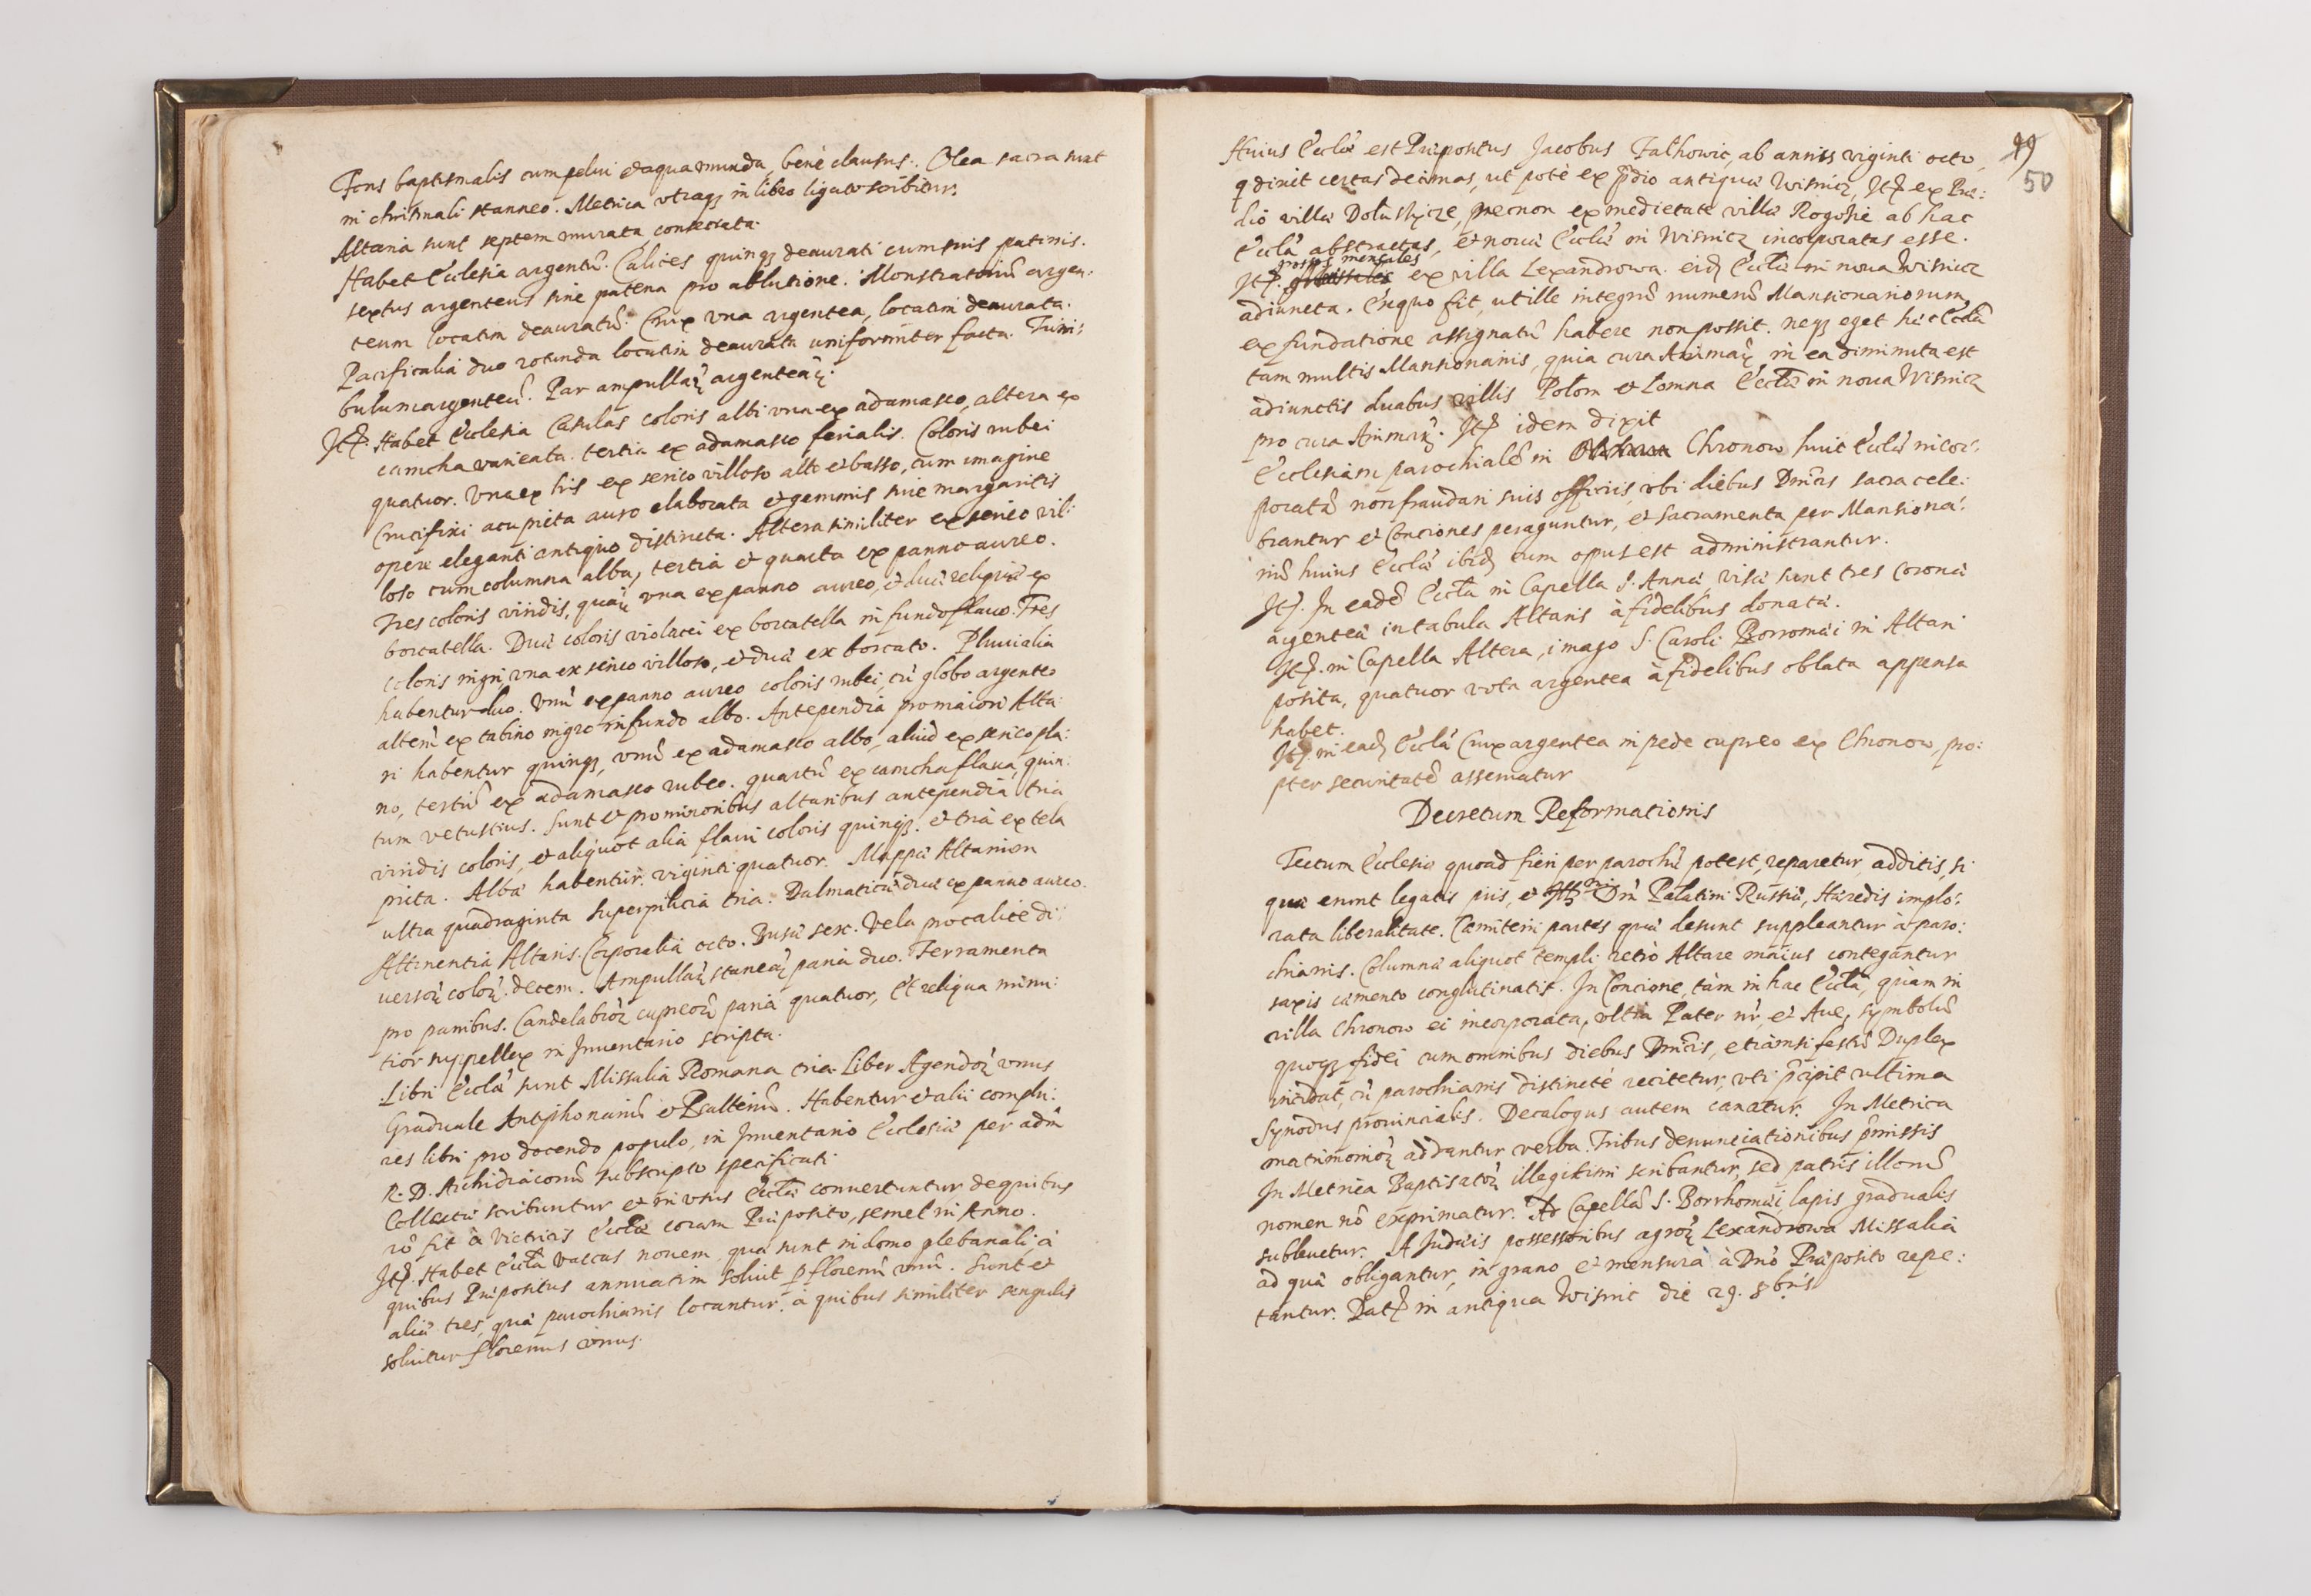 Fons baptismalis cum pelui et aqua munda, benè clausus. Olea sacra sunt
in chrismali stanneo. Metrica utraqꝫ in libro ligato scribitur.
Altaria sunt septem murata consecrata.
Habet Ecclesia argentũ. Calices quinqꝫ deaurati cum suis patinis.
sextus argenteus sine patena pro ablutione. Monstratoriũ argen:
teum locatim deauratũ. Crux vna argentea, locatim deaurata.
Pacificalia duo rotunda locatim deaurata uniformiter facta. Turi:
bulum argenteũ. Par ampullaꝝ argenteaꝝ.
Itꝫ. Habet Ecclesia Casulas coloris albi vna ex adamasco, altera ex
camcha varieata. tertia ex adamasco ferialis. Coloris rubei
quatuor. Vna ex his ex serico villoso alto et basso, cum imagine
Crucifixi acu picta auro elaborata et gemmis siue margaritis
opere eleganti antiquo distincta. Altera similiter ex serico vil:
loso cum columna alba, tertia et quarta ex panno aureo.
Tres coloris viridis, quaꝝ vna ex panno aureo, et duæ reliquæ ex
borcatella. Duæ coloris violacei ex borcatella in fundo flauo. Tres
coloris nigri, vna ex serico villoso, et duæ ex borcato. Pluuialia
habentur duo. Vnũ ex panno aureo coloris rubei, cũ globo argenteo
alterũ ex tabino nigro in fundo albo. Antependia pro maiori Alta:
ri habentur quinqꝫ, vnũ ex adamasco albo, aliud ex serico pla:
no, tertiũ ex adamasco rubeo. quartũ ex camcha flaua, quin:
tum vetustius. Sunt et pro minoribus altaribus antependia tria
viridis coloris, et aliquot alia flaui coloris quinqꝫ. et tria ex tela
picta. Albæ habentur. viginti quatuor. Mappæ Altarium
ultra quadraginta Superpilicia tria. Dalmaticæ duæ ex panno aureo.
Attinentia Altaris. Corporalia octo. Bursæ sex. Vela pro calice di:
uersoꝝ coloꝝ. decem. Ampullaꝝ stanneaꝝ paria duo. Ferramenta
pro panibus. Candelabroꝝ cupreoꝝ paria quatuor, et reliqua minu:
tior suppellex in Inuentario scripta.
Libri Ecclæ sunt Missalia Romana tria. Liber Agendoꝝ vnus
Graduale Antiphonariũ et Psalteriũ. Habentur et alii complu:
res libri pro docendo populo, in Inuentario Ecclesiæ per adm̃
R. D. Archidiaconũ subscripto specificati
Collectæ scribuntur et in vsus Ecclæ conuertuntur de quibus
rõ fit à Victricis Ecclæ coram Præposito, semel in Anno.
Itꝫ. Habet Eccla vaccas nouem quæ sunt in domo plebanali, à
quibus Præpositus annuatim soluit ꝑ florenũ vnũ. Sunt et
aliæ tres, quæ parochianis locantur. à quibus similiter sengulis
soluitur florenus vnus.
49
50
Huius Ecclæ est Præpositus Jacobus Falkowic, ab annis viginti octo,
q̃ dixit certas decimas, ut potè ex p̃dio antiquæ Wisnicz, Itꝫ ex Præ:
dio villæ Doluszycze, necnon ex medietate villæ Rogosie ab hac
Eccla abstractas, et nouæ Ecclæ in Wisnicz incorporatas esse.
Itꝫ. missas mensales ex villa Lexandrowa. eidẽ Ecclæ in noua Wisnicz
adiuncta. Ex quo fit, ut ille integrũ numerũ Mansionariorum
ex fundatione assignatũ habere non possit. neqꝫ eget hæc Eccla
tam multis Mansionariis, quia cura Animaꝝ in ea diminuta est
adiunctis duabus villis Polom et Lomna Ecclæ in noua Wisnicz
pro cura Animaꝝ. Itꝫ idem dixit
Ecclesiam parochialẽ in Chronow huic Ecclæ incor:
poratã non fraudari suis officiis, vbi diebus Dnĩcis sacra cele:
brantur et Conciones peraguntur, et sacramenta per Mansiona:
riũ huius Ecclæ ibidẽ cum opus est administrantur.
Itꝫ. In eadẽ Eccla in Capella S. Annæ visæ sunt tres Coronæ
argenteæ in tabula Altaris à fidelibus donatæ.
Itꝫ. in Capella Altera, imago S. Caroli Borromæi in Altari
posita, quatuor vota argentea à fidelibus oblata appensa
habet.
Itꝫ. in eadẽ Eccla Crux argentea in pede cupreo ex Chronow, pro:
pter securitatẽ asseruatur
Decretum Reformationis
Tectum Ecclesiæ quoad fieri per parochũ potest, reparetur, additis, si
quæ erunt legatis piis, et Dnĩ Palatini Russiæ, Hæredis implo:
rata liberalitate. Cæmiterii partes quæ desunt suppleantur à paro:
chianis. Columnæ aliquot templi retrò Altare maius contegantur
saxis cæmento conglutinatis. In Concione, tàm in hac Eccla, quàm in
villa Chronow ei incorporata, vltra Pater nr̃, et Aue, Symbolũ
quoqꝫ fidei cum omnibus diebus Dnĩcis, etiamsi festũ Duplex
incidat, cũ parochianis distinctè recitetur, vti p̃cipit ultima
Synodus prouincialis. Decalogus autem canatur. In Metrica
matrimonioꝝ addantur verba. Tribus denunciationibus p̃missis
In Metrica Baptisatoꝝ illegitimi scribantur, sed patris illorũ
nomen nõ exprimatur. Ad Capellã S. Borrhomæi lapis gradualis
subleuetur. A Judæis possessoribus agroꝝ Lexandrowa Missalia
ad quæ obligantur, in grano et mensura à Dnõ Præposito repe:
tantur. Datꝫ in antiqua Wisnic die 29. 8bris